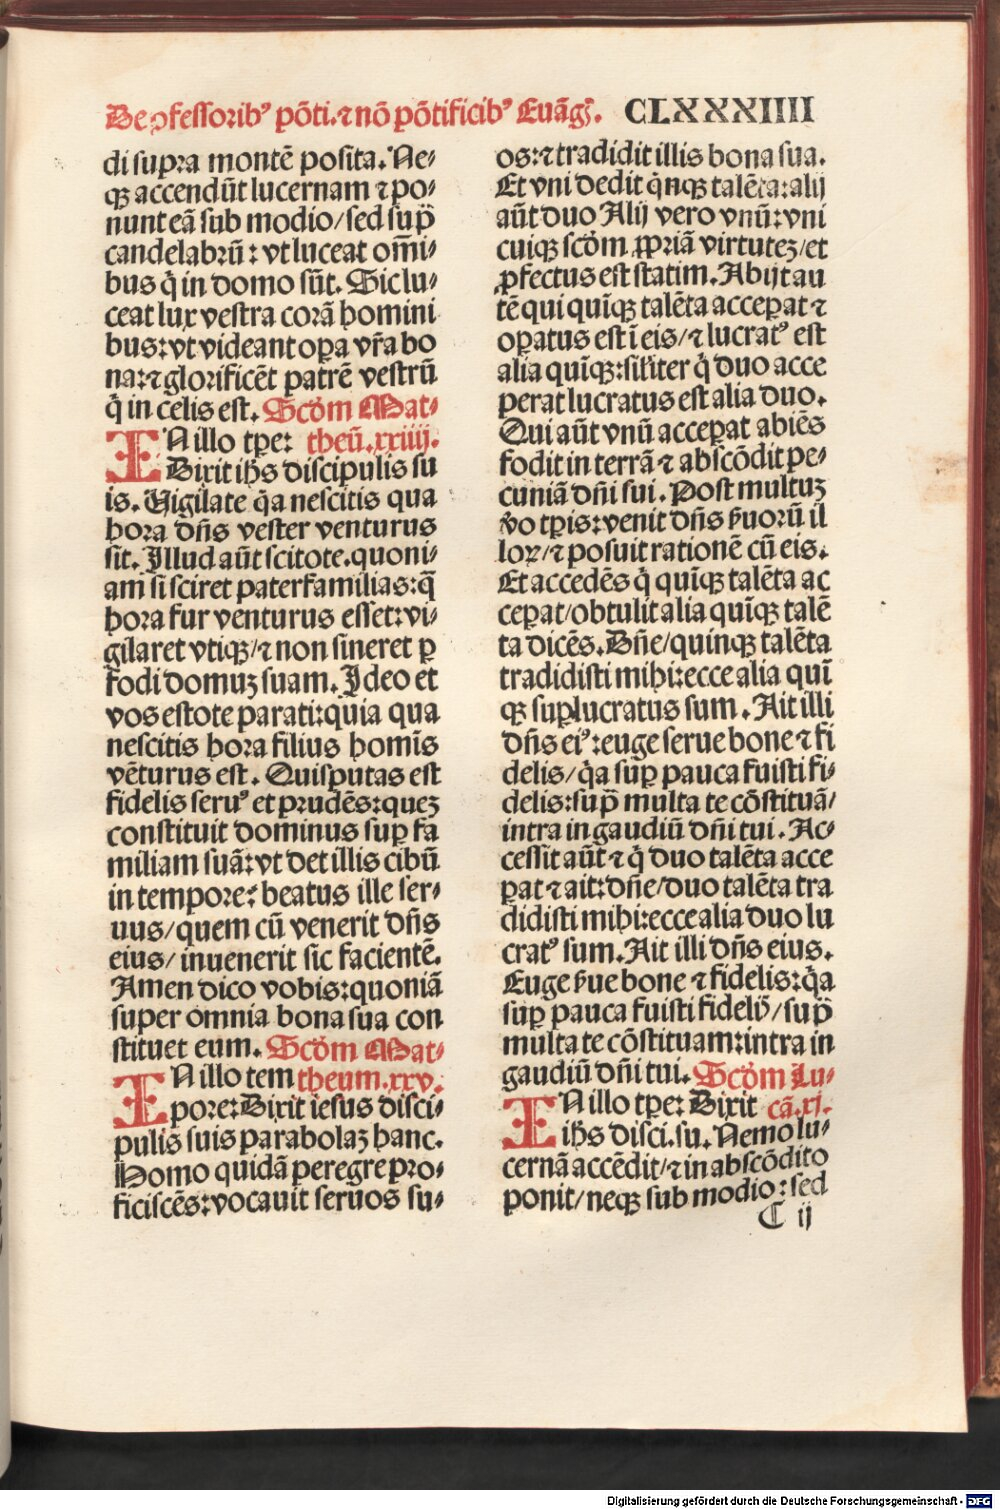 De ꝯfessoribꝰ põti. ⁊ nõ põtificibꝰ Euãg̃. CLXXXIIII
di supra montẽ posita. Ne⸗
qꝫ accendũt lucernam ⁊ po⸗
nunt eã sub modio/sed sup̃
candelabrũ: vt luceat om̃i⸗
bus q̇ in domo sũt. Sic lu⸗
ceat lux vestra corã homini
bus: vt videant oꝑa vr̃a bo
na: ⁊ glorificẽt patrẽ vestrũ
q̇ in celis est. Scḋm Mat⸗
IN illo tꝑe: theũ. xxiiij.
Dixit ih̃s discipulis su
is. Vigilate q̇a nescitis qua
hora dñs vester venturus
sit. Illud aũt scitote. quoni⸗
am si sciret paterfamilias: q̃
hora fur venturus esset: vi⸗
gilaret vtiqꝫ/⁊ non sineret ꝑ
fodi domuꝫ suam. Ideo et
vos estote parati: quia qua
nescitis hora filius homĩs
vẽturus est. Quis putas est
fidelis seruꝰ et prudẽs: queꝫ
constituit dominus suꝑ fa
miliam suã: vt det illis cibũ
in tempore? beatus ille ser⸗
uus/quem cũ venerit dñs
eius/inuenerit sic facientẽ.
Amen dico vobis: quoniã
super omnia bona sua con
stituet eum. Scḋm Mat⸗
IN illo tem theum. xxv.
pore: Dixit iesus disci⸗
pulis suis parabolaꝫ hanc.
Homo quidã peregre pro⸗
ficiscẽs: vocauit seruos su⸗
os: ⁊ tradidit illis bona sua.
Et vni dedit q̇nqꝫ talẽta: alij
aũt duo Alij vero vnũ: vni
cuiqꝫ scḋm ꝓpriã virtuteꝫ/et
ꝓfectus est statim. Abijt au
tẽ qui quĩqꝫ talẽta acceꝑat ⁊
oꝑatus est ĩ eis/⁊ lucratꝰ est
alia quĩqꝫ: sil̃iter q̇ duo acce
perat lucratus est alia duo.
Qui aũt vnũ acceꝑat abiẽs
fodit in terrã ⁊ abscõdit pe⸗
cuniã dñi sui. Post multuꝫ
v̊o tꝑis: venit dñs ẜuorũ il
loꝝ/⁊ posuit rationẽ cũ eis.
Et accedẽs q̇ quĩqꝫ talẽta ac
ceꝑat/obtulit alia quĩqꝫ talẽ
ta dicẽs. Dñe/quinqꝫ talẽta
tradidisti mihi: ecce alia quĩ
qꝫ suꝑlucratus sum. Ait illi
dñs eiꝰ: euge serue bone ⁊ fi
delis/q̇a suꝑ pauca fuisti fi⸗
delis: sup̃ multa te cõstituã/
intra in gaudiũ dñi tui. Ac⸗
cessit aũt ⁊ q̇ duo talẽta acce
ꝑat ⁊ ait: dñe/duo talẽta tra
didisti mihi: ecce alia duo lu
cratꝰ sum. Ait illi dñs eius.
Euge ẜue bone ⁊ fidelis: q̇a
suꝑ pauca fuisti fidelis/sup̃
multa te cõstituam: intra in
gaudiũ dñi tui. Scḋm Lu⸗
IN illo tꝑe: Dixit cã. xj.
ih̃s disci. su. Nemo lu⸗
cernã accẽdit/⁊ in abscõdito
ponit/neqꝫ sub modio: sed
C ij
Digitalisierung gefördert durch die Deutsche Forschungsgemeinschaft - DFG